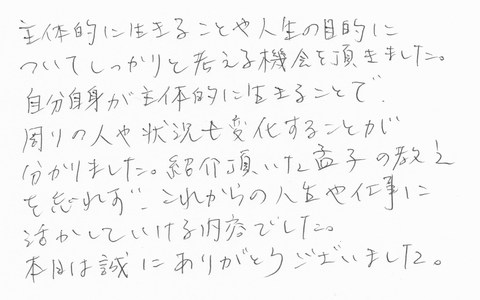 主体的に生きることや人生の目的に
ついてしっかりと考える機会を頂きました。
自分自身が主体的に生きることで、
周りの人や状況も変化することが
分かりました。紹介頂いた孟子の教え
を忘れず、これからの人生や仕事に
活かしていける内容でした。
本日は誠にありがとうございました。